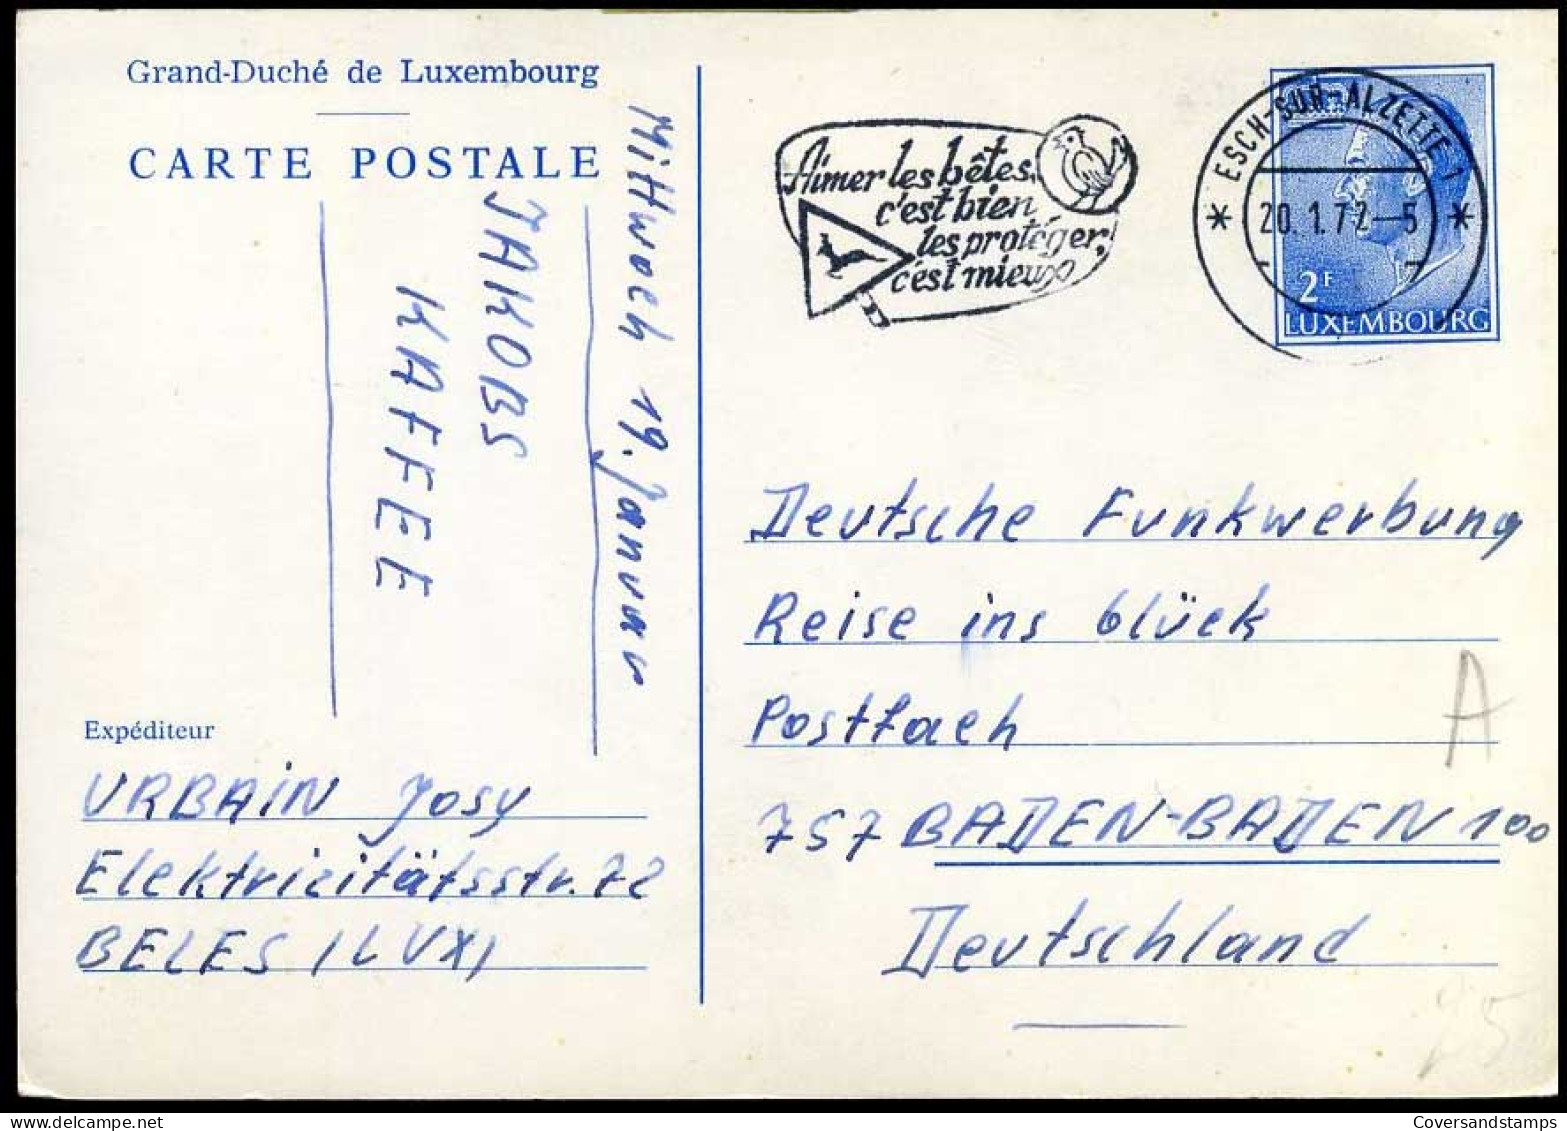 Grand-Duché de Luxembourg
CARTE POSTALE
Mittwoch 19. Januar
JAKOBS
KAFFEE
Expéditeur
URBAIN Josy
Elektricitätsstr. 72
BELES (LUX)
Aimer les bêtes,
c'est bien
les protéger,
c'est mieux
ESCH-SUR-ALZETTE 1
20.1.72-5
2F
LUXEMBOURG
Deutsche Funkwerbung
Reise ins Glück
Postfach
A
757 BADEN-BADEN 100
Deutschland
Coversandstamps